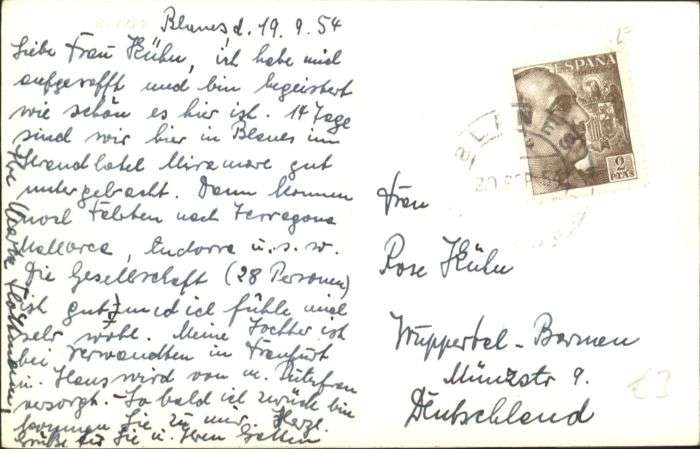 Blanes, d. 19. 9. 54
Liebe Frau Kühn, ich habe mich
aufgerafft und bin begeistert
wie schön es hier ist. 14 Tage
sind wir hier in Blanes im
Strandhotel Miramare gut
untergebracht. Dann kommen
noch Fahrten nach Terragona
Mallorca, Andorra u. s. w.
Die Gesellschaft (28 Personen)
ist gut und ich fühle mich
sehr wohl. Meine Tochter ist
bei Verwandten in Frankfurt
m. Haus wird von m.
versorgt. - So bald ich zurück bin
kommen Sie zu mir. Herzl.
Grüße für Sie u. Ihren Gatten
Ihre
ESPAÑA
2
PTAS
BLANES
20 SEP 54
Frau
Rose Kühn
Wuppertal-Barmen
Münzstr 9.
Deutschland